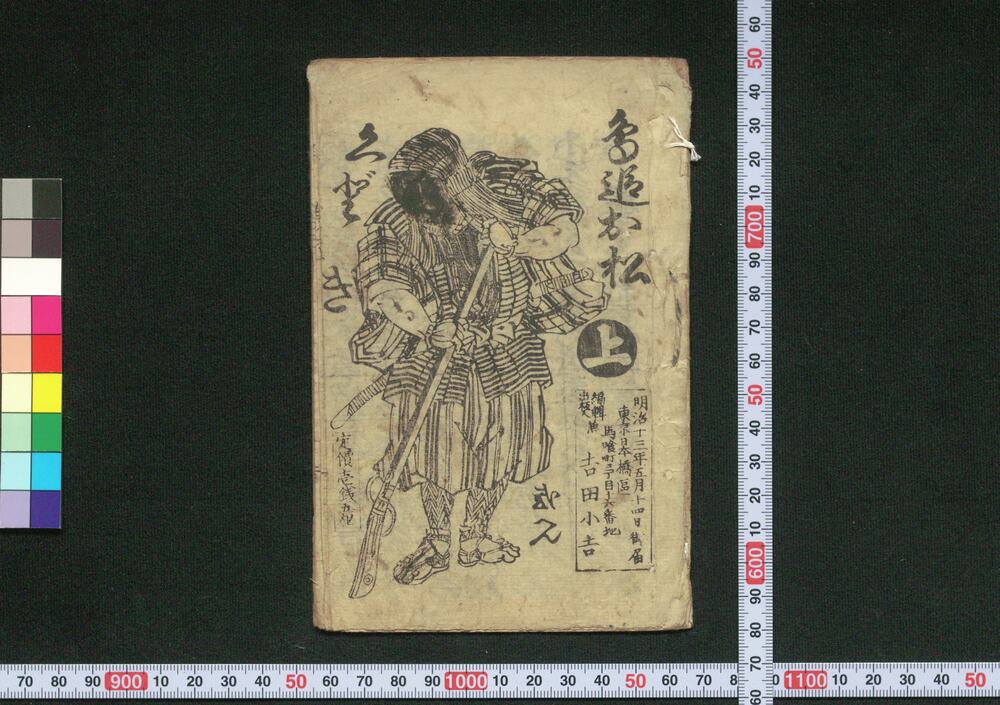 鳥追お松
上
明治十三年五月十四日御届
東京日本橋區
馬喰町三丁目十六番地
編輯兼
出板人
吉田小吉
定價壱銭五厘
60
50
40
30
20
10
700
90
80
70
60
50
40
30
20
10
600
90
80
70
60
70 80 90 900 10 20 30 40 50 60 70 80 90 1000 10 20 30 40 50 60 70 8 0 90 1100 10 20 30 40 50